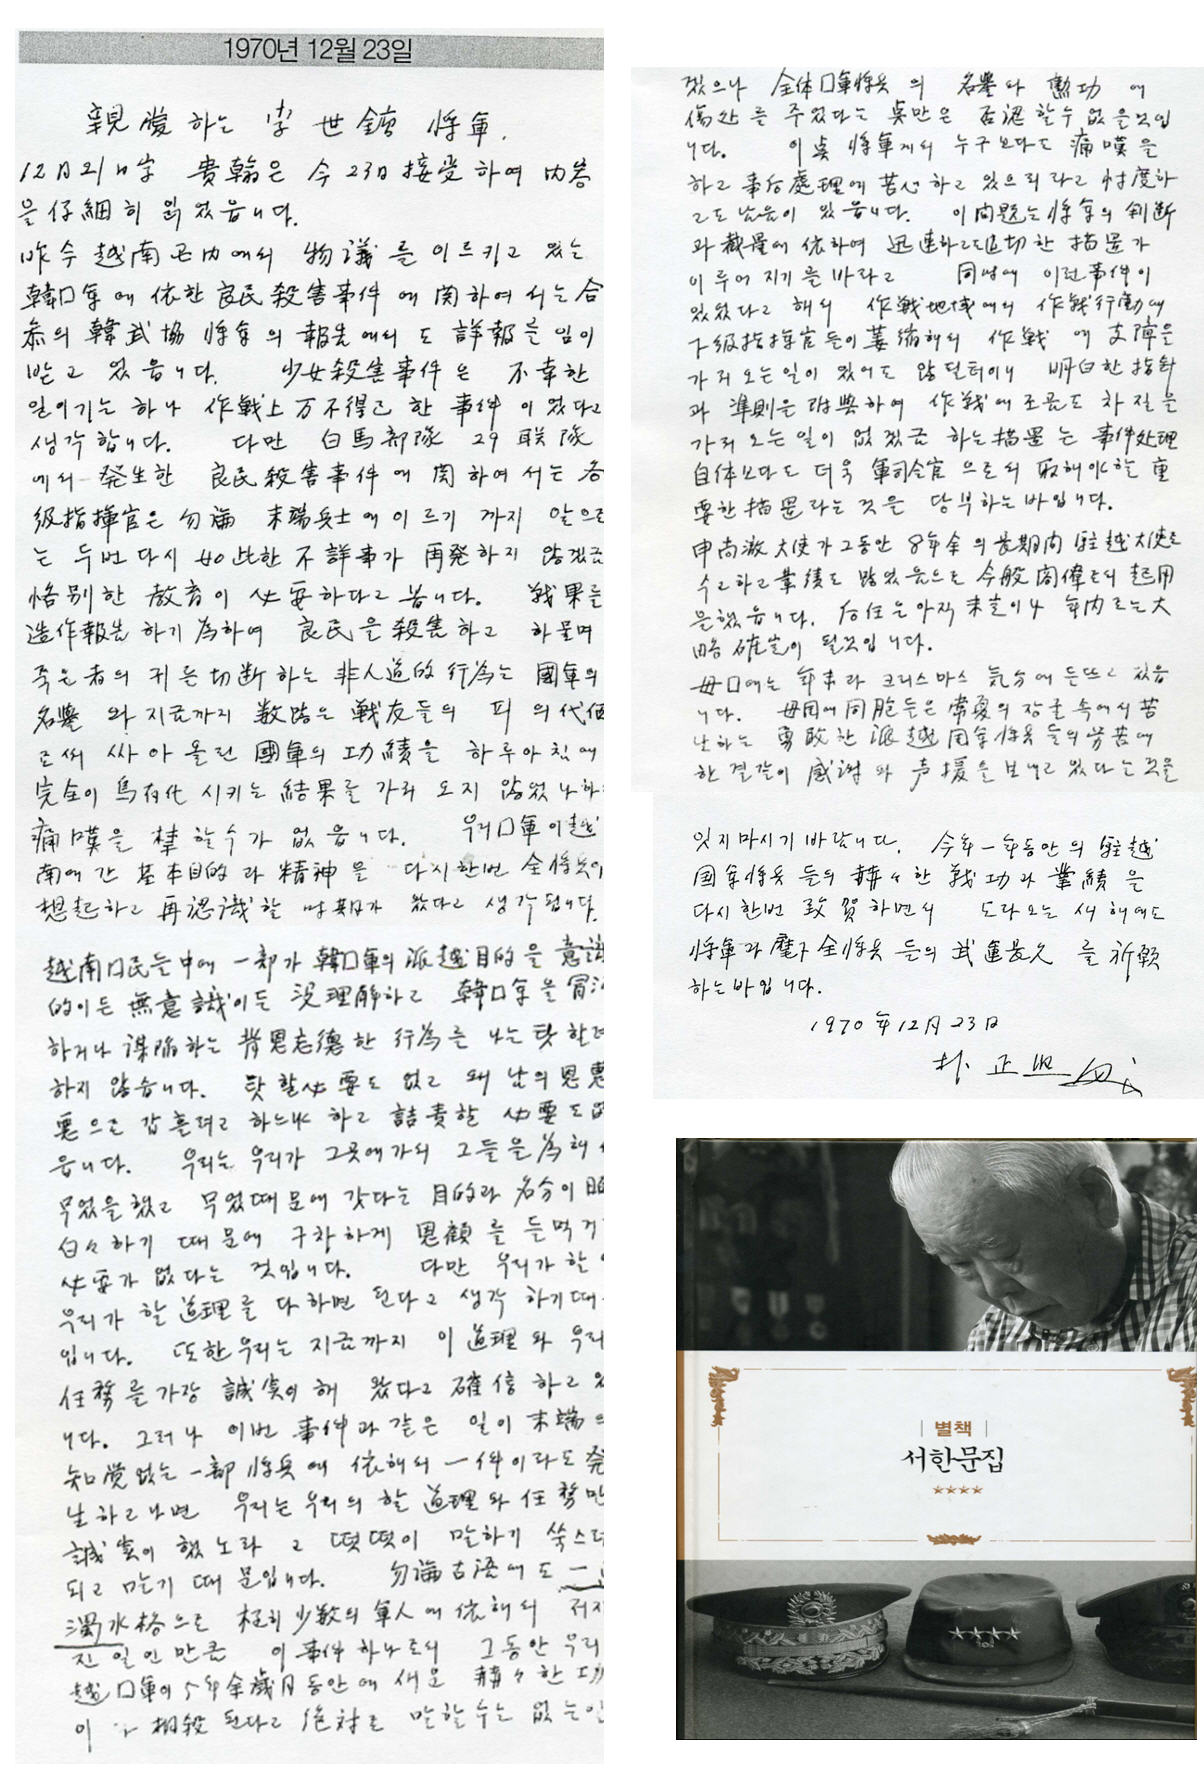 1970년 12월 23일
親愛하는 李世鎬 將軍.
12月21日字 貴翰은 今 23日 接受하여 内容
을 仔細히 읽었읍니다.
昨今 越南 国内에서 物議를 이르키고 있는
韓国軍에 依한 良民 殺害事件에 関하여서는 合
参의 韓武協 將軍의 報告에서도 詳報를 임이
받고 있읍니다. 少女殺害事件은 不幸한
일이기는 하나 作戦上 万不得已한 事件이었다고
생각합니다. 다만 白馬部隊 29 联隊
에서 発生한 良民殺害事件에 関하여서는 各
級指揮官은 勿論 末端兵士에 이르기 까지 앞으로
는 두번 다시 如此한 不詳事가 再発하지 않겠금
恪別한 教育이 必要하다고 봅니다. 戦果를
造作報告하기 為하여 良民을 殺害하고 하물며
죽은 者의 귀를 切断하는 非人道的 行為는 國軍의
名譽와 지금까지 数많은 戦友들의 피의 代価
로써 싸아 올린 國軍의 功績을 하루아침에
完全이 烏有化 시키는 結果를 가져 오지 않었나하
痛嘆을 禁할수가 없읍니다. 우리 国軍이 越
南에 간 基本目的과 精神을 다시한번 全將兵이
想起하고 再認識할 時期가 왔다고 생각됩니다.
越南国民들 中에 一部가 韓国軍의 派越目的을 意識
的이든 無意識이든 沒理解하고 韓国軍을 冒瀆
하거나 謀陷하는 背恩忘德한 行為를 나는 탓할려
하지 않습니다. 탓할 必要도 없고 왜 남의 恩惠
悪으로 갑흘려고 하느냐 하고 詰責할 必要도 없
읍니다. 우리는 우리가 그곳에가서 그들을 為해서
무엇을 했고 무엇때문에 갓다는 目的과 名分이 明
白々하기 때문에 구차하게 恩顧를 들먹거
必要가 없다는 것입니다. 다만 우리가 할
우리가 할 道理를 다하면 된다고 생각 하기때
입니다. 또한 우리는 지금까지 이 道理와 우리
任務를 가장 誠実이 해 왔다고 確信하고 있
니다. 그러나 이번 事件과 같은 일이 末端의
知覚없는 一部 將兵에 依해서 一件이라도 発
날하고나면 우리는 우리의 할 道理와 任務만
誠実이 했노라 고 떳떳이 말하기 쑥스러
되고 마는기 때문입니다. 勿論 古語에도 一
濁水格으로 極히 少数의 軍人에 依해서 저지
진 일인 만큼 이 事件하나로서 그동안 우리
越国軍이 5年余歲月동안에 세운 赫々한 功
이 相殺된다고 絶対로 말할수는 없는일
겠으나 全体国軍將兵의 名譽와 勲功에
傷処를 주었다는 点만은 否認할수 없을것입
니다. 이点 將軍께서 누구보다도 痛嘆을
하고 事后處理에 苦心하고 있으리라고 忖度하
고도 남음이 있읍니다. 이問題는 將軍의 判断
과 裁量에 依하여 迅速하고도 適切한 措置가
이루어 지기를 바라고 同時에 이런事件이
있었다고 해서 作戦地域에서 作戦行動에
下級指揮官들이 萎縮해서 作戦에 支障을
가져 오는일이 있어도 않될터이니 明白한 指針
과 準則을 附與하여 作戦에 조금도 차질을
가져 오는일이 없겠금 하는 措置는 事件処理
自体보다도 더욱 軍司令官으로서 取해야 할 重
要한 措置라는 것을 당부하는바입니다.
申尚澈 大使가 그동안 8年余의 長期间 駐越大使로
수고하고 業績도 많었음으로 今般 閣僚로서 起用
을 했읍니다. 后任은 아직 未定이나 年内로는 大
略 確定이 될것입니다.
母国에는 年末과 크리스마스 気分에 든뜨고 있읍
니다. 母国에 同胞들은 常夏의 정글 속에서 苦
난하는 勇敢한 派越国軍將兵들의 勞苦에
한결같이 感謝와 声援을 보내고 있다는 것을
잊지마시기 바랍니다. 今年一年동안의 駐越
国軍將兵들의 赫々한 戦功과 業績을
다시한번 致賀하면서 도라오는 새해에도
將軍과 麾下 全將兵들의 武運長久를 祈願
하는바입니다.
1970年12月23日
朴正熙
별책
서한문집